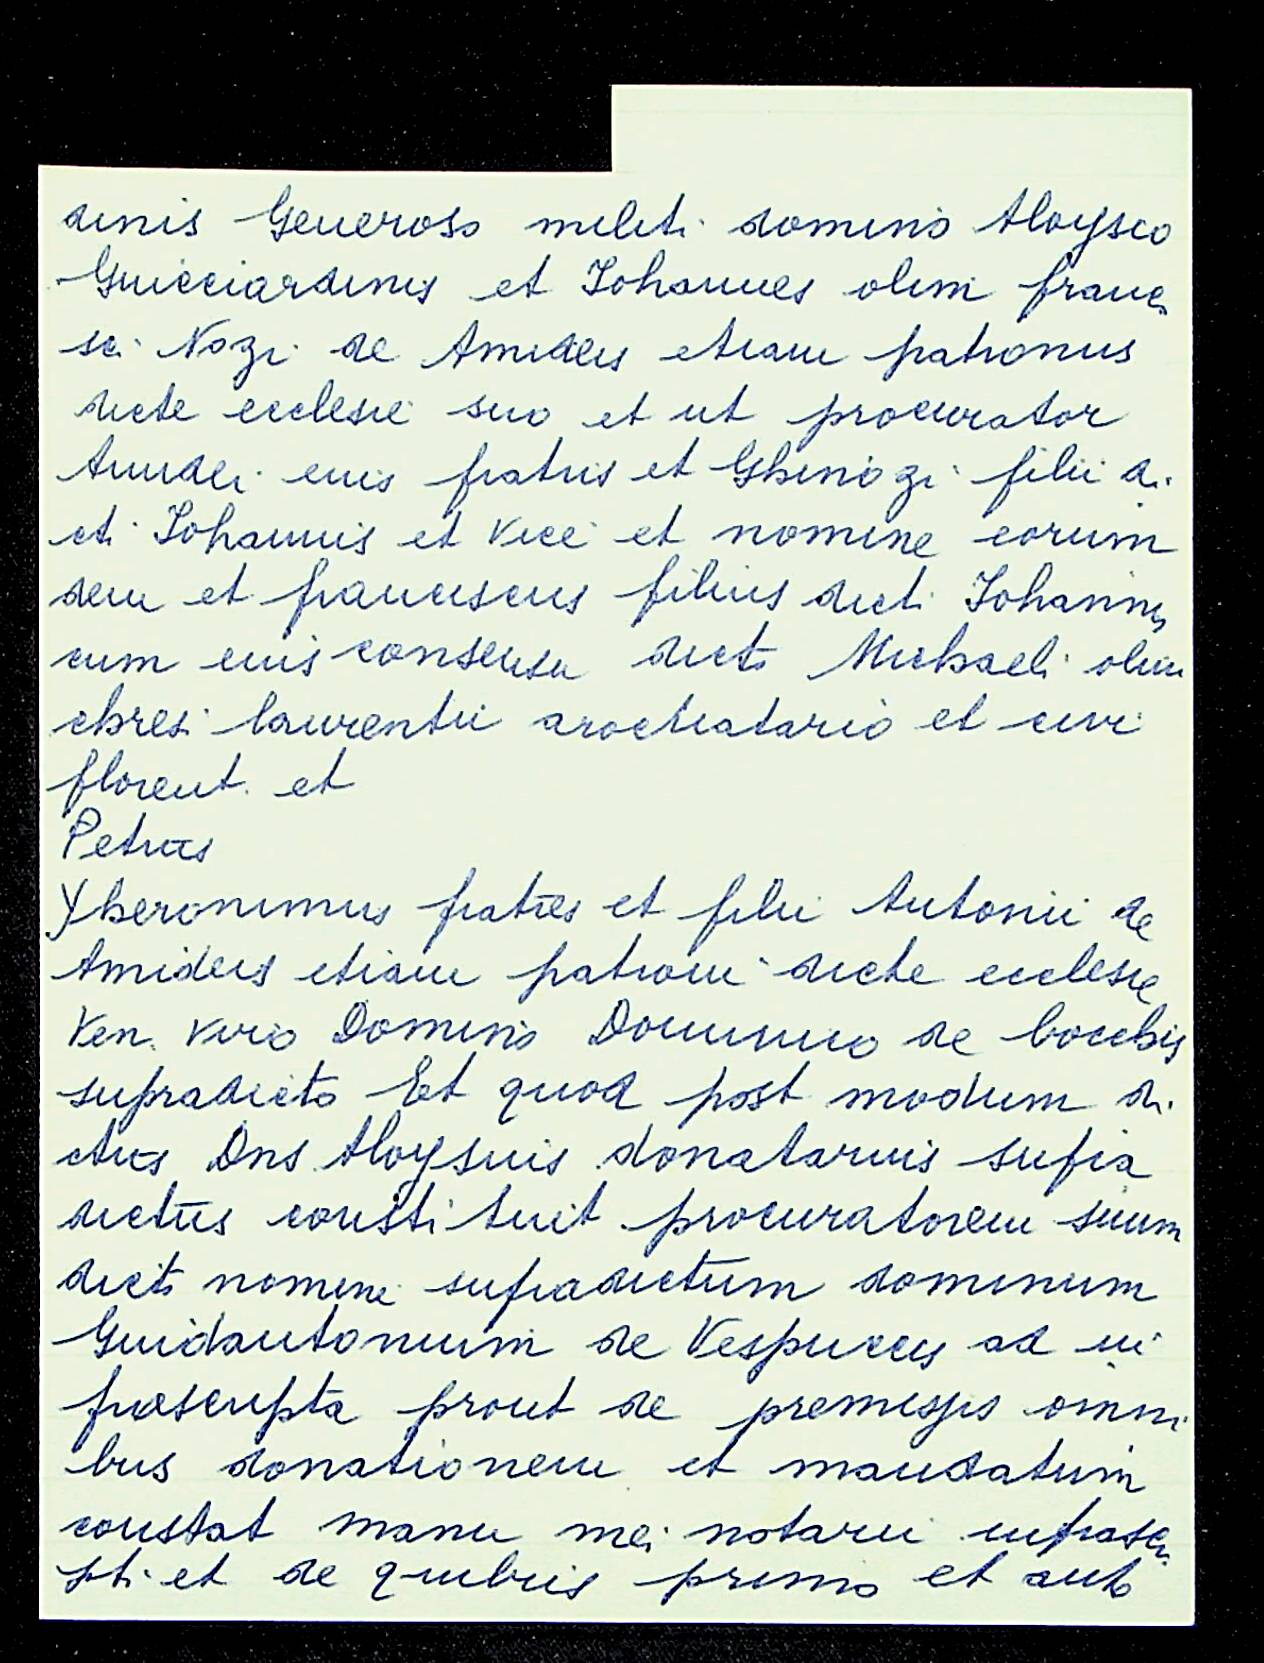 dinis Generoso militi domino Aloysio
Guicciardinis et Johannes olim franci
sci Nozi de Amideis etiam patronus
dicte ecclesie suo et ut procurator
Amidei eius fratris et Ghinozi filii di
cti Johannis et vice et nomine eorum
dem et franciscus filius dicti Johannis
cum eius consensu dicto Michaeli olim
chresi laurentii arochatario et civi
florent. et
Petrus
Yheronimus fratres et filii Antonii de
Amideis etiam patroni dicte ecclesie
Ven. viro Domino Dominico de bocchis
supradicto Et quod post modum di
ctus Dns Aloysius donatarius supra
dictus constituit procuratorem suum
dicto nomine supradictum dominum
Guidantonium de Vespuccis ad in
frascripta prout de premissis omni
bus donationem et mandatum
constat manu mei notarii infrascri
pti et de quibus primo et ante